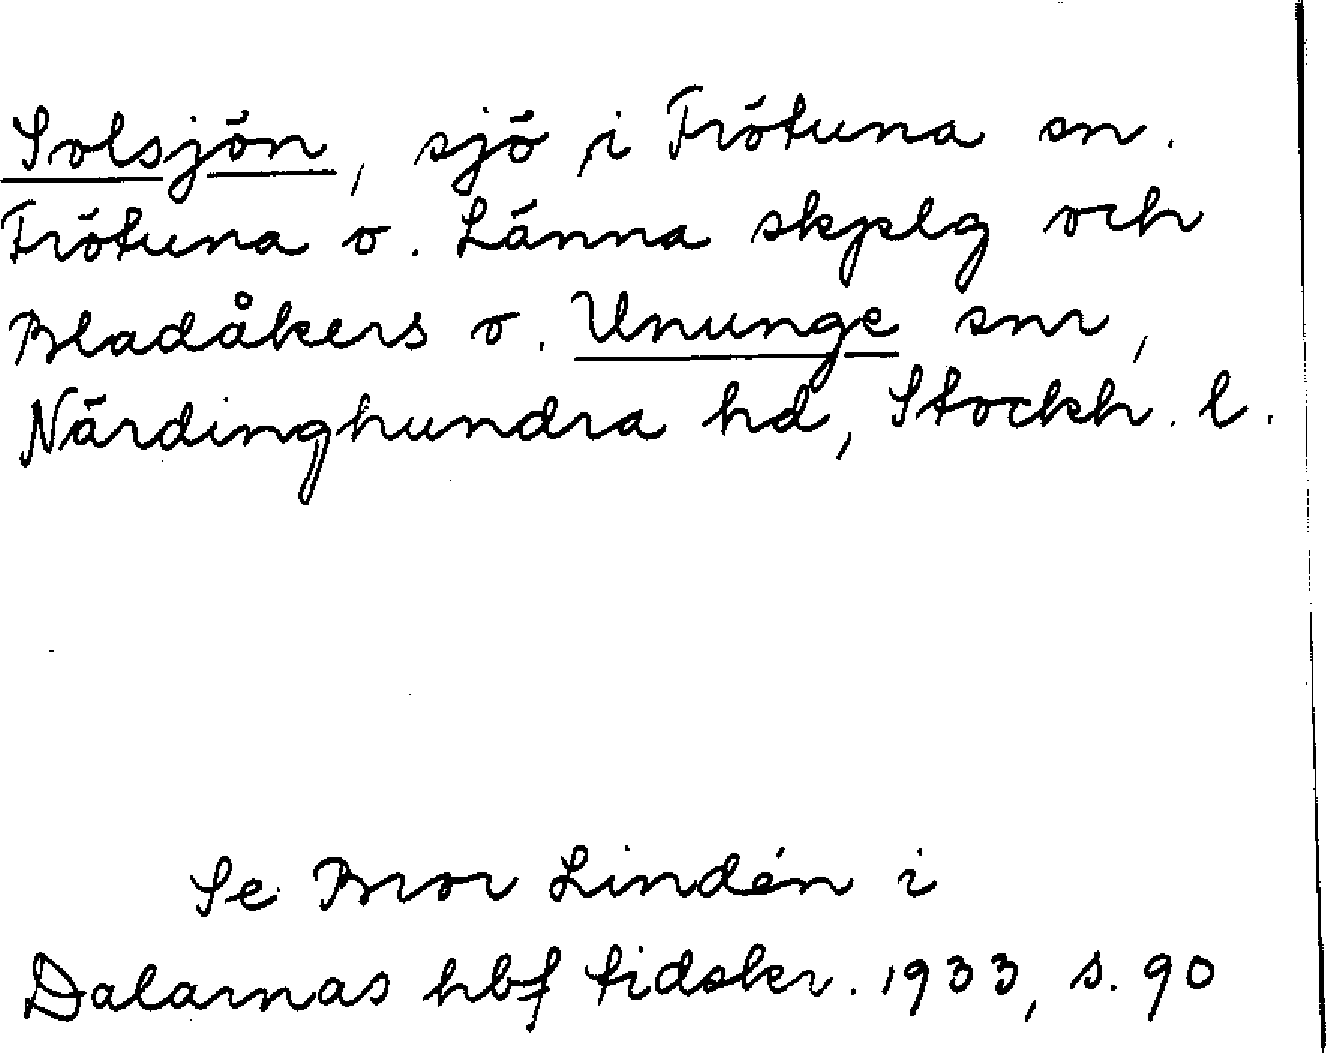 Solsjön, sjö i Frötuna sn.
Frötuna o. Länna skplg och
Bladåkers o. Ununge snr,
Närdinghundra hd, Stockh. l.
Se Bror Lindén i
Dalarnas hbf tidskr. 1933, s. 90